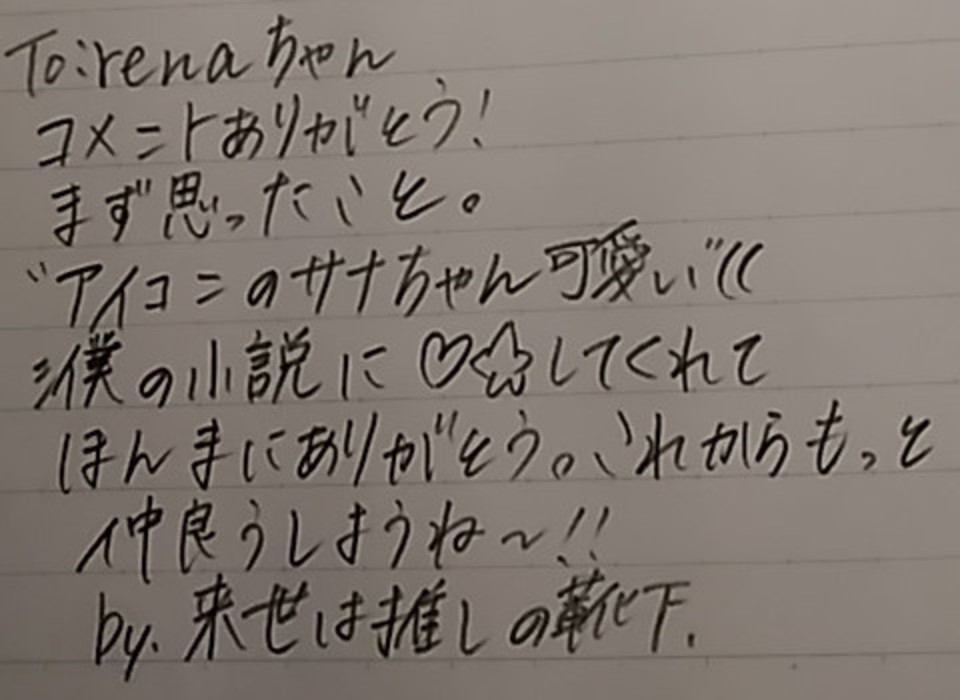 To:renaちゃん
コメントありがとう!
まず思ったこと。
"アイコンのサナちゃん可愛い"((
僕の小説に♡☆してくれて
ほんまにありがとう。これからもっと
仲良うしようね〜!!
by.来世は推しの靴下.